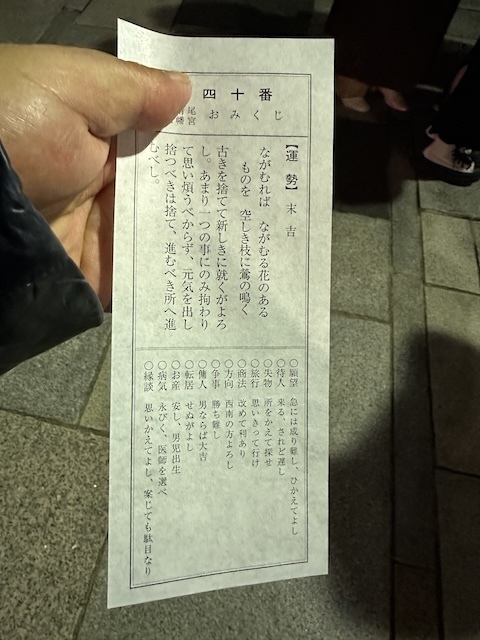 四十番
尾宮
おみくじ
【運勢】末吉
ながむれば ながむる花のある
ものを 空しき枝に鶯の鳴く
古きを捨てて新しきに就くがよろ
し。あまり一つの事にのみ拘わり
て思い煩うべからず、元気を出し
捨つべきは捨て、進むべき所へ進
むべし。
○願望 急には成り難し、ひかえてよし
○待人 来る、されど遅し
○失物 所をかえて探せ
○旅行 思いきって行け
○商法 改めて利あり
○方向 西南の方よろし
○争事 勝ち難し
○傭人 男ならば大吉
○転居 せぬがよし
○お産 安し、男児出生
○病気 永びく、医師を選べ
○縁談 思いかえてよし、案じても駄目なり